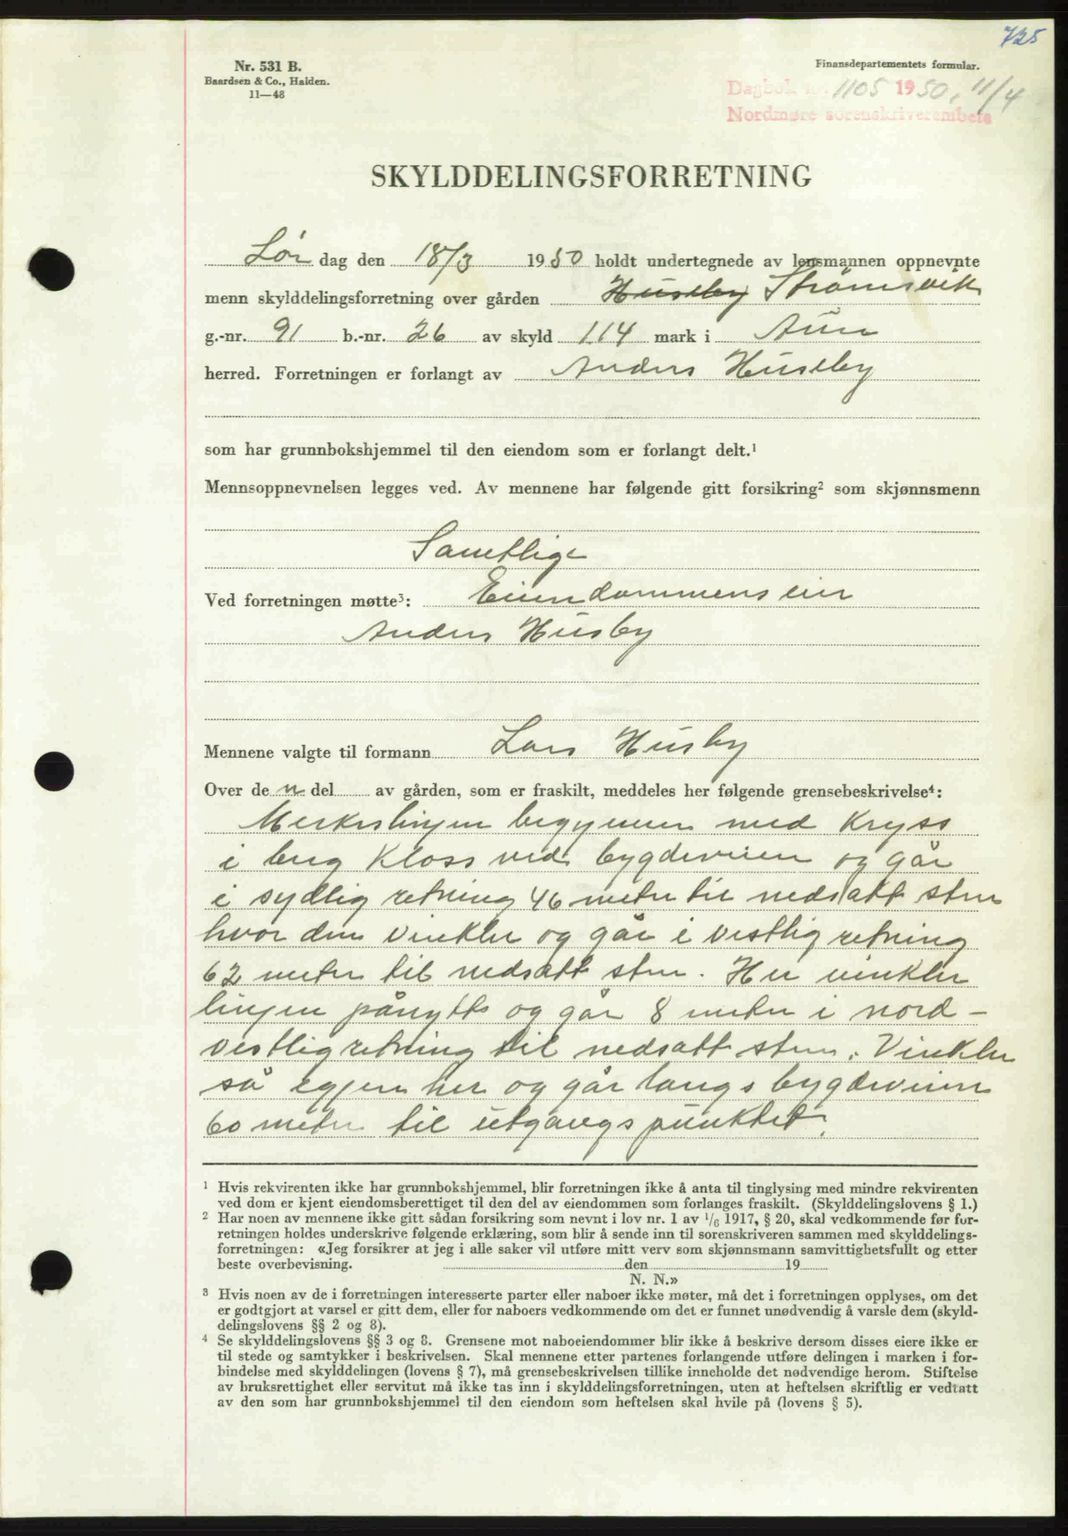 725
Nr. 531 B.
Baardsen & Co., Halden.
11—48
Finansdepartementets formular.
Dagbok nr. 1105 1950, 11/4
Nordmøre sorenskriverembete
SKYLDDELINGSFORRETNING
Lør dag den 18/3 1950 holdt undertegnede av lensmannen oppnevnte
menn skylddelingsforretning over gården Huseby Strømsvik
g.-nr. 91 b.-nr. 26 av skyld 1.14 mark i Aure
herred. Forretningen er forlangt av Anders Huseby
som har grunnbokshjemmel til den eiendom som er forlangt delt.¹
Mennsoppnevnelsen legges ved. Av mennene har følgende gitt forsikring² som skjønnsmenn
Samtlige
Ved forretningen møtte³: Eiendommens eier
Anders Husby
Mennene valgte til formann Lars Husby
Over de n del av gården, som er fraskilt, meddeles her følgende grensebeskrivelse⁴:
Merkeslinjen begynner med Kryss
i berg Kloss ved bygdeveien og går
i sydlig retning 46 meter til nedsatt sten
hvor den vinkler og går i vestlig retning
62 meter til nedsatt sten. Her vinkler
linjen pånytt og går 8 meter i nord-
vestlig retning til nedsatt sten. Vinkler
så igjen her og går langs bygdeveien
60 meter til utgangspunktet.
¹ Hvis rekvirenten ikke har grunnbokshjemmel, blir forretningen ikke å anta til tinglysing med mindre rekvirenten
ved dom er kjent eiendomsberettiget til den del av eiendommen som forlanges fraskilt. (Skylddelingslovens § 1.)
² Har noen av mennene ikke gitt sådan forsikring som nevnt i lov nr. 1 av 1/6 1917, § 20, skal vedkommende før for-
retningen holdes underskrive følgende erklæring, som blir å sende inn til sorenskriveren sammen med skylddelings-
forretningen: «Jeg forsikrer at jeg i alle saker vil utføre mitt verv som skjønnsmann samvittighetsfullt og etter
beste overbevisning. den 19
N. N.»
³ Hvis noen av de i forretningen interesserte parter eller naboer ikke møter, må det i forretningen opplyses, om det
er godtgjort at varsel er gitt dem, eller for naboers vedkommende om det er funnet unødvendig å varsle dem (skyld-
delingslovens §§ 2 og 8).
⁴ Se skylddelingslovens §§ 3 og 8. Grensene mot naboeiendommer blir ikke å beskrive dersom disses eiere ikke er
til stede og samtykker i beskrivelsen. Skal mennene etter partenes forlangende utføre delingen i marken i for-
bindelse med skylddelingen (lovens § 7), må grensebeskrivelsen tillike inneholde det nødvendige herom. Stiftelse
av bruksrettighet eller servitut må ikke tas inn i skylddelingsforretningen, uten at heftelsen skriftlig er vedtatt
av den som har grunnbokshjemmel til den eiendom som heftelsen skal hvile på (lovens § 5).